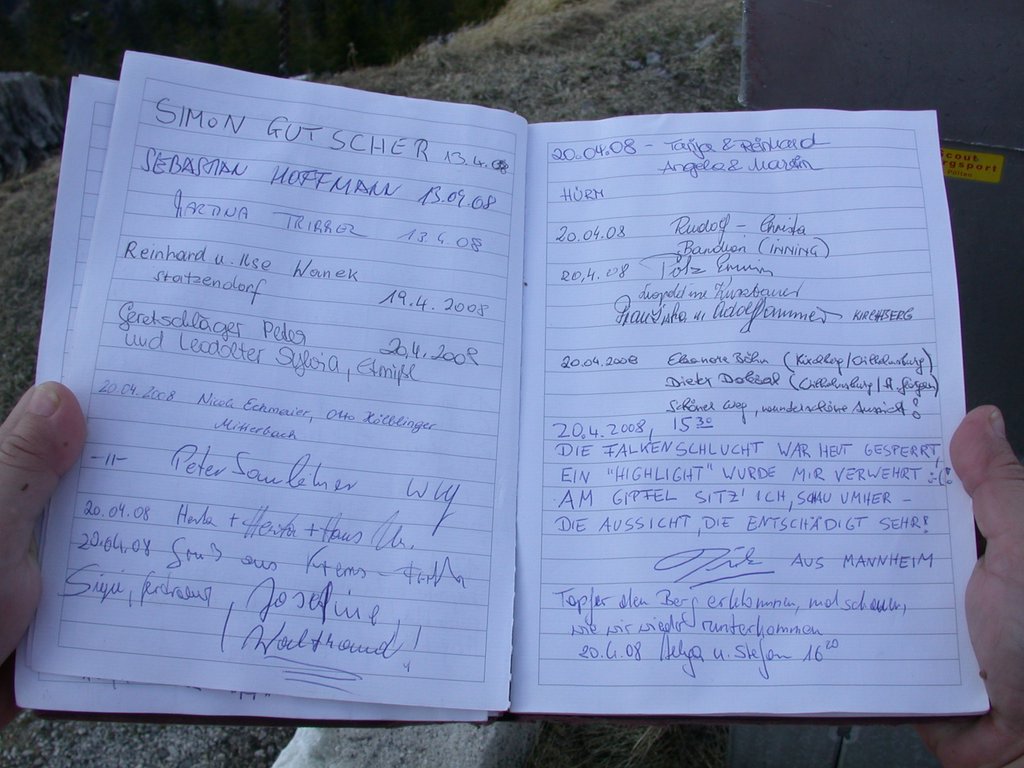 SIMON GUTSCHER 13.4.08
SEBASTIAN HOFFMANN 13.04.08
MARTINA 13.4.08
Reinhard u. Ilse Wanek
Statzendorf 19.4.2008
Geretschläger Peter
und Leodolter Sylvia, 20.4.2008
20.04.2008 Nicole Eckmaier, Otto Hölblinger
Mitterbach
-11- Peter
20.04.08 Herta + Herta + Hans
20.04.08 Gruß aus Krems -
Sigi, Gertraud, Josefine,
Waltraud!
20.04.08 - Tanja & Reinhard
Angela & Martin
HÜRM
20.04.08 Rudolf - Christa
(INNING)
20.4.08
Leopoldine
Franziska u. KIRCHBERG
20.04.2008 Eleonore Böhm
Dieter
Schöner Weg, wunderschöne Aussicht!
20.4.2008, 15 30
DIE FALKENSCHLUCHT WAR HEUT GESPERRT,
EIN "HIGHLIGHT" WURDE MIR VERWEHRT :-(!
AM GIPFEL SITZ' ICH, SCHAU UMHER -
DIE AUSSICHT, DIE ENTSCHÄDIGT SEHR!
AUS MANNHEIM
Tapfer den Berg erklommen, mal schauen,
wie wir wieder runterkommen
20.4.08 Helga u. Stefan 16 20
scout
rgsport